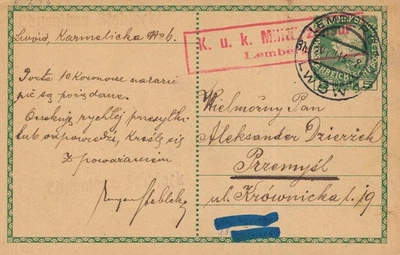 Lwów, Karmelicka No 6.
Porto 10 Koronowe narazie
nie są pożądane.
Oczekuję rychłej przesyłki
lub odpowiedzi, kreślę się
Z poważaniem
K. u. k. Militär
Lemberg
Wielmożny Pan
Aleksander Dzierżek
Przemyśl
ul. Krównicka l. 19